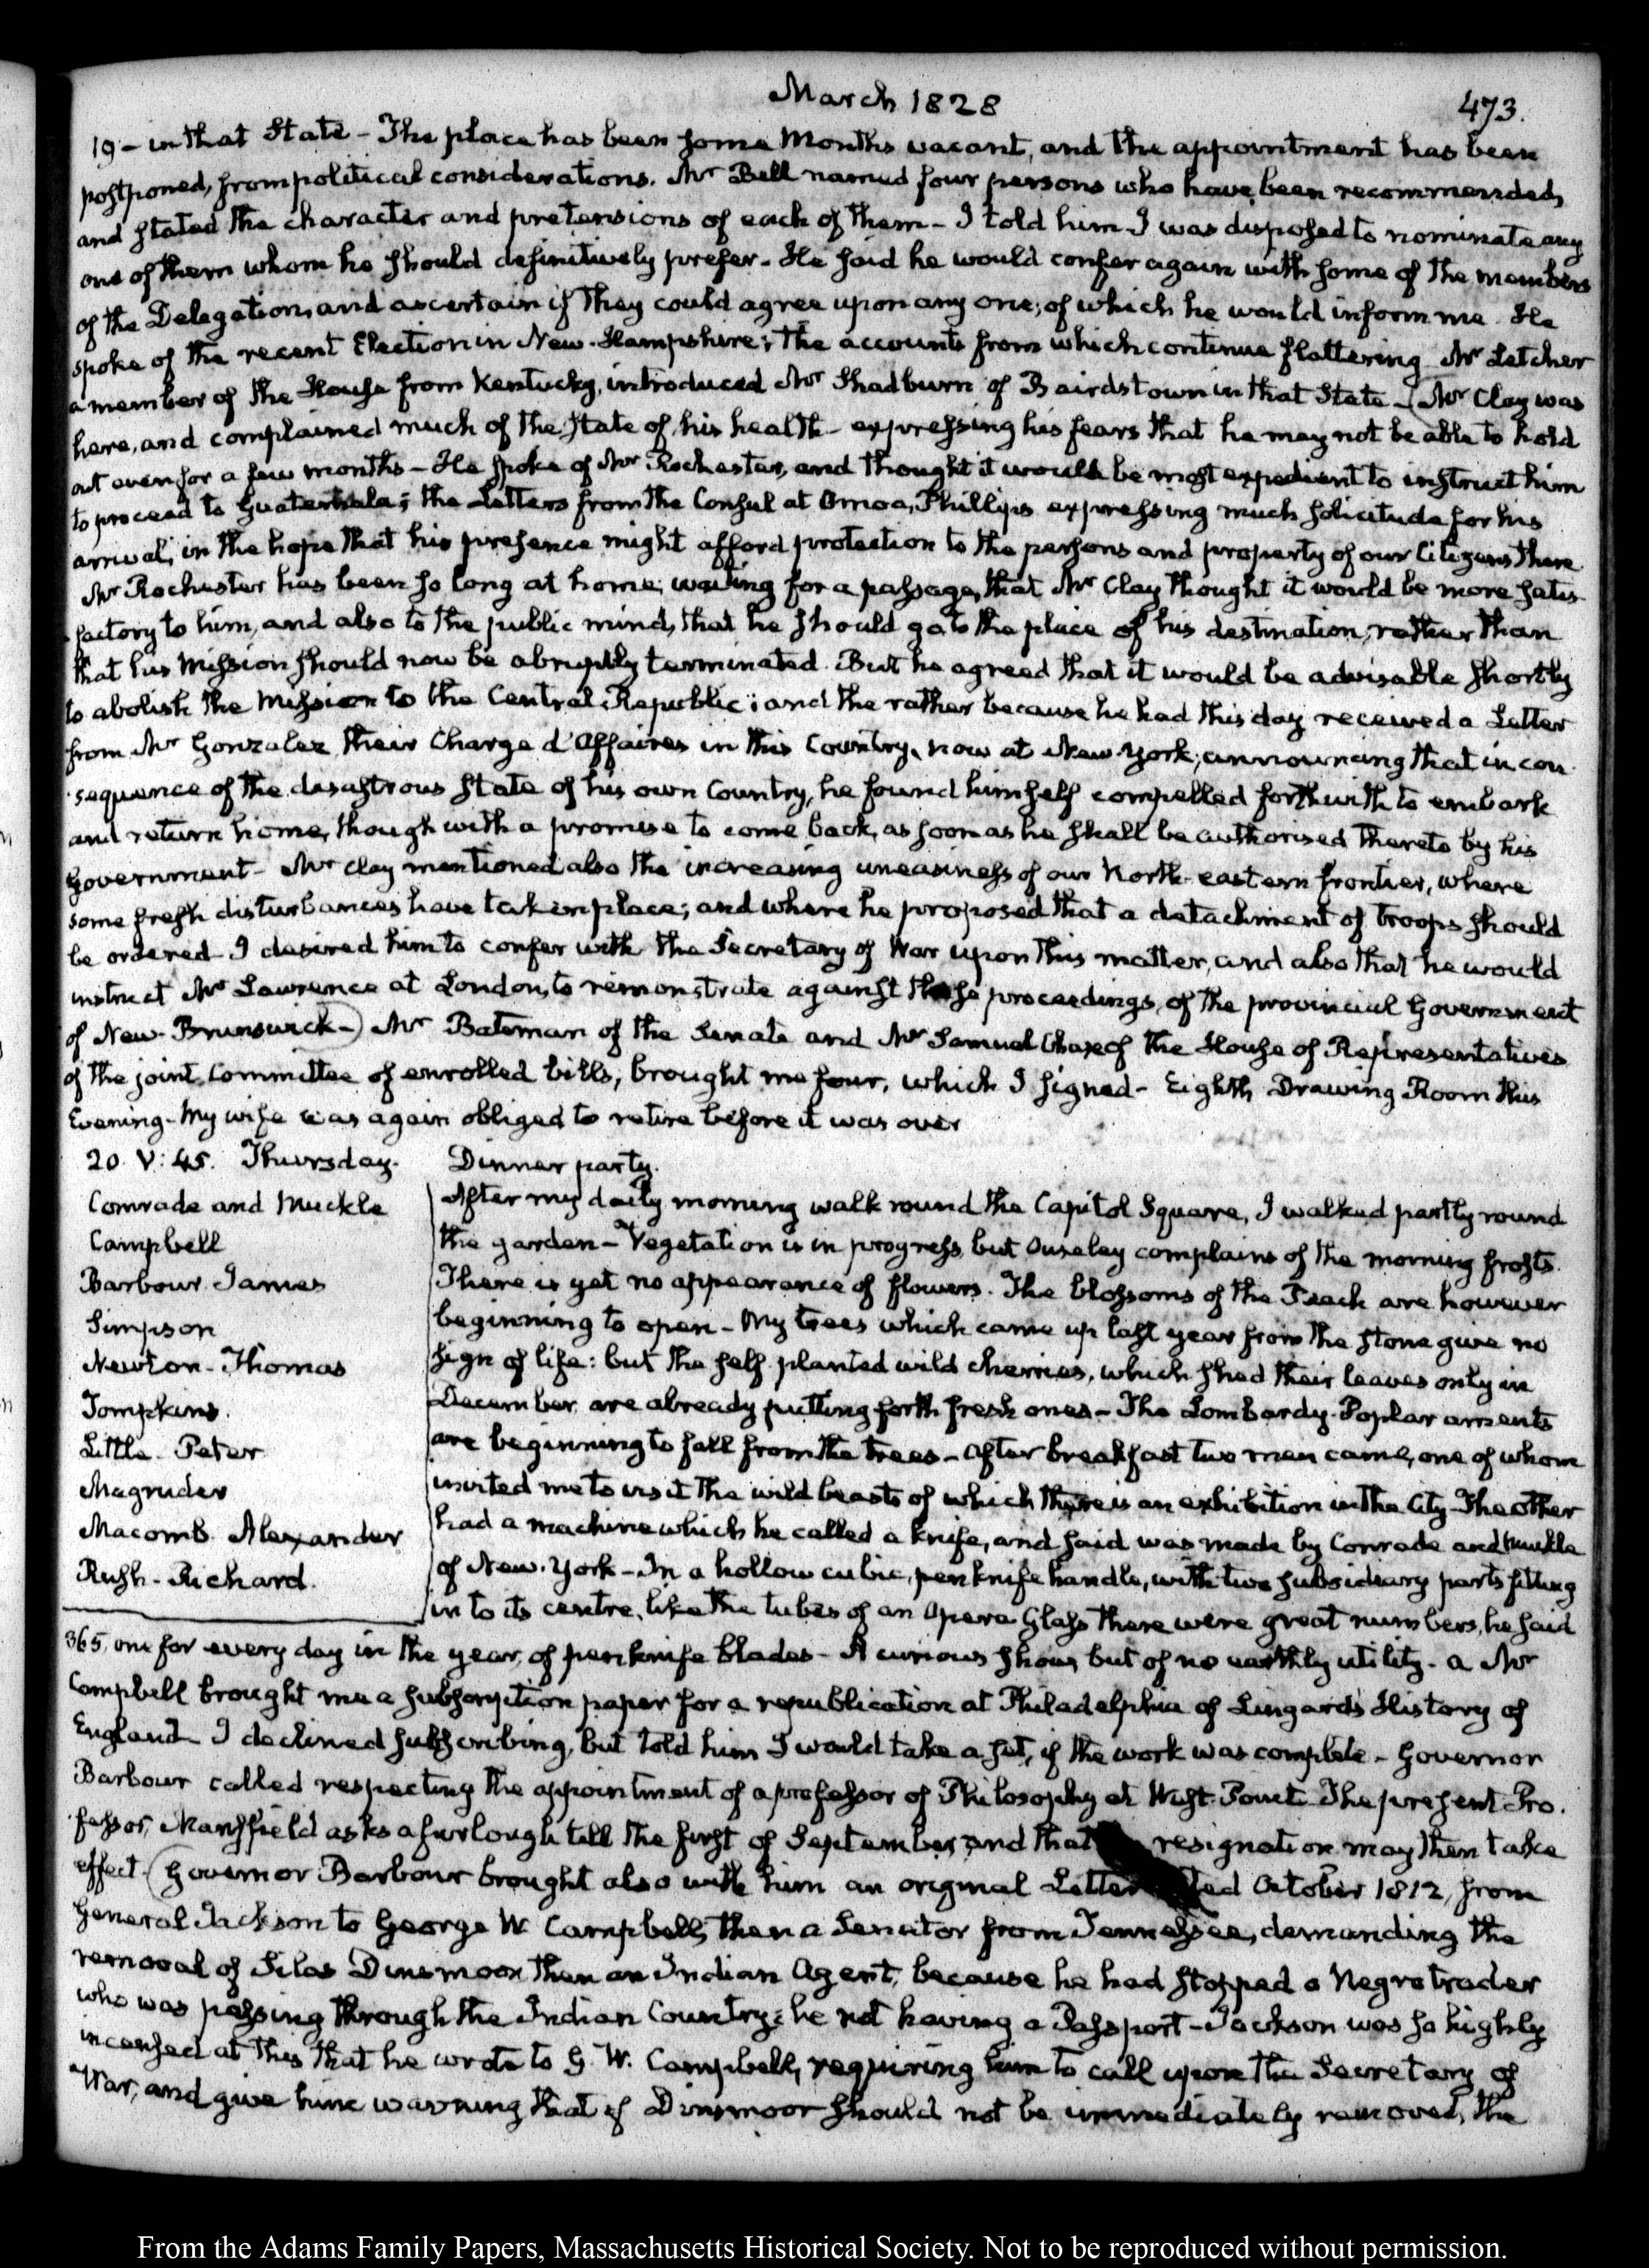 March 1828
473.
19 – in that State – The place has been some Months vacant, and the appointment has been
postponed, from political considerations. Mr Bell named four persons who have been recommended,
and stated the character and pretensions of each of them – I told him I was disposed to nominate any
one of them whom he should definitively prefer – He said he would confer again with some of the members
of the Delegation, and ascertain if they could agree upon any one; of which he would inform me. He
spoke of the recent Election in New-Hampshire; the accounts from which continue flattering. Mr Letcher
a member of the House from Kentucky, introduced Mr Shadburn of Bairdstown in that State – (Mr Clay was
here, and complained much of the State of his health – expressing his fears that he may not be able to hold
out even for a few months – He spoke of Mr Rochester, and thought it would be most expedient to instruct him
to proceed to Guatemala; the Letters from the Consul at Omoa, Phillips expressing much solicitude for his
arrival; in the hope that his presence might afford protection to the persons and property of our Citizens there
Mr Rochester has been so long at home, waiting for a passage, that Mr Clay thought it would be more satis-
factory to him, and also to the public mind, that he should go to the place of his destination, rather than
that his Mission should now be abruptly terminated. But he agreed that it would be advisable shortly
to abolish the Mission to the Central Republic; and the rather because he had this day received a Letter
from Mr Gonzalez their Chargé d'Affaires in this Country, now at New-York; announcing that in con-
sequence of the disastrous State of his own Country, he found himself compelled forthwith to embark
and return home, though with a promise to come back, as soon as he shall be authorised thereto by his
Government – Mr Clay mentioned also the increasing uneasiness of our North-eastern frontier, where
some fresh disturbances have taken place; and where he proposed that a detachment of troops should
be ordered – I desired him to confer with the Secretary of War upon this matter, and also that he would
instruct Mr Lawrence at London, to remonstrate against these proceedings of the provincial Government
of New-Brunswick –) Mr Bateman of the Senate and Mr Samuel Chase of the House of Representatives
of the joint Committee of enrolled bills, brought me four, which I signed – Eighth Drawing Room this
Evening – My wife was again obliged to retire before it was over
20. V: 45. Thursday. Dinner party.
Conrade and Muckle
Campbell
Barbour. James
Simpson
Newton – Thomas
Tompkins.
Little – Peter
Magruder
Macomb. Alexander
Rush – Richard.
After my daily morning walk round the Capitol Square, I walked partly round
the garden – Vegetation is in progress, but Ouseley complains of the morning frosts.
There is yet no appearance of flowers. The blossoms of the Peach are however
beginning to open – My trees which came up last year from the stone give no
sign of life: but the self-planted wild cherries, which shed their leaves only in
December, are already putting forth fresh ones – The Lombardy-Poplar aments
are beginning to fall from the trees – After breakfast two men came, one of whom
invited me to visit the wild beasts of which there is an exhibition in the City – The other
had a machine which he called a knife, and said was made by Conrade and Muckle
of New-York – In a hollow cubic, penknife handle, with two subsidiary parts fitting
in to its centre, like the tubes of an Opera Glass there were great numbers, he said
365, one for every day in the year, of penknife blades – A curious show, but of no earthly utility – a Mr
Campbell brought me a subscription paper for a republication at Philadelphia of Lingard's History of
England – I declined subscribing, but told him I would take a set, if the work was complete – Governor
Barbour called respecting the appointment of a professor of Philosophy at West-Point – The present Pro-
fessor, Mansfield asks a furlough till the first of September, and that resignation may then take
effect. (Governor Barbour brought also with him an original Letter October 1812, from
General Jackson to George W. Campbell, then a Senator from Tennessee, demanding the
removal of Silas Dinsmoor then an Indian Agent, because he had stopped a Negro trader
who was passing through the Indian Country; he not having a Passport – Jackson was so highly
incensed at this that he wrote to G. W. Campbell, requiring him to call upon the Secretary of
War, and give him warning that if Dinsmoor should not be immediately removed, the
From the Adams Family Papers, Massachusetts Historical Society. Not to be reproduced without permission.